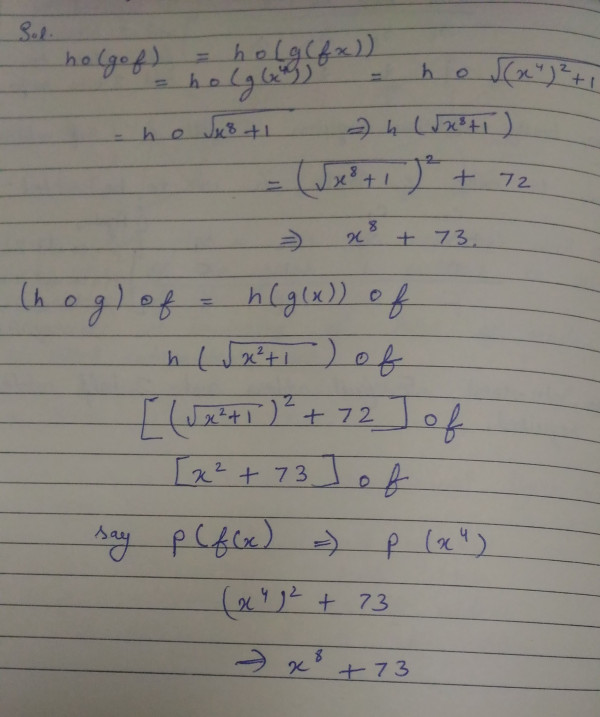 Sol.
ho(gof) = ho(g(fx))
= ho(g(x⁴)) = h o √((x⁴)²+1)
= h o √(x⁸+1) ⇒ h (√(x⁸+1))
= (√(x⁸+1))² + 72
⇒ x⁸ + 73.
(h o g) o f = h(g(x)) o f
h (√(x²+1)) o f
[(√(x²+1))² + 72] o f
[x² + 73] o f
say p(f(x) ⇒ p (x⁴)
(x⁴)² + 73
→ x⁸ + 73